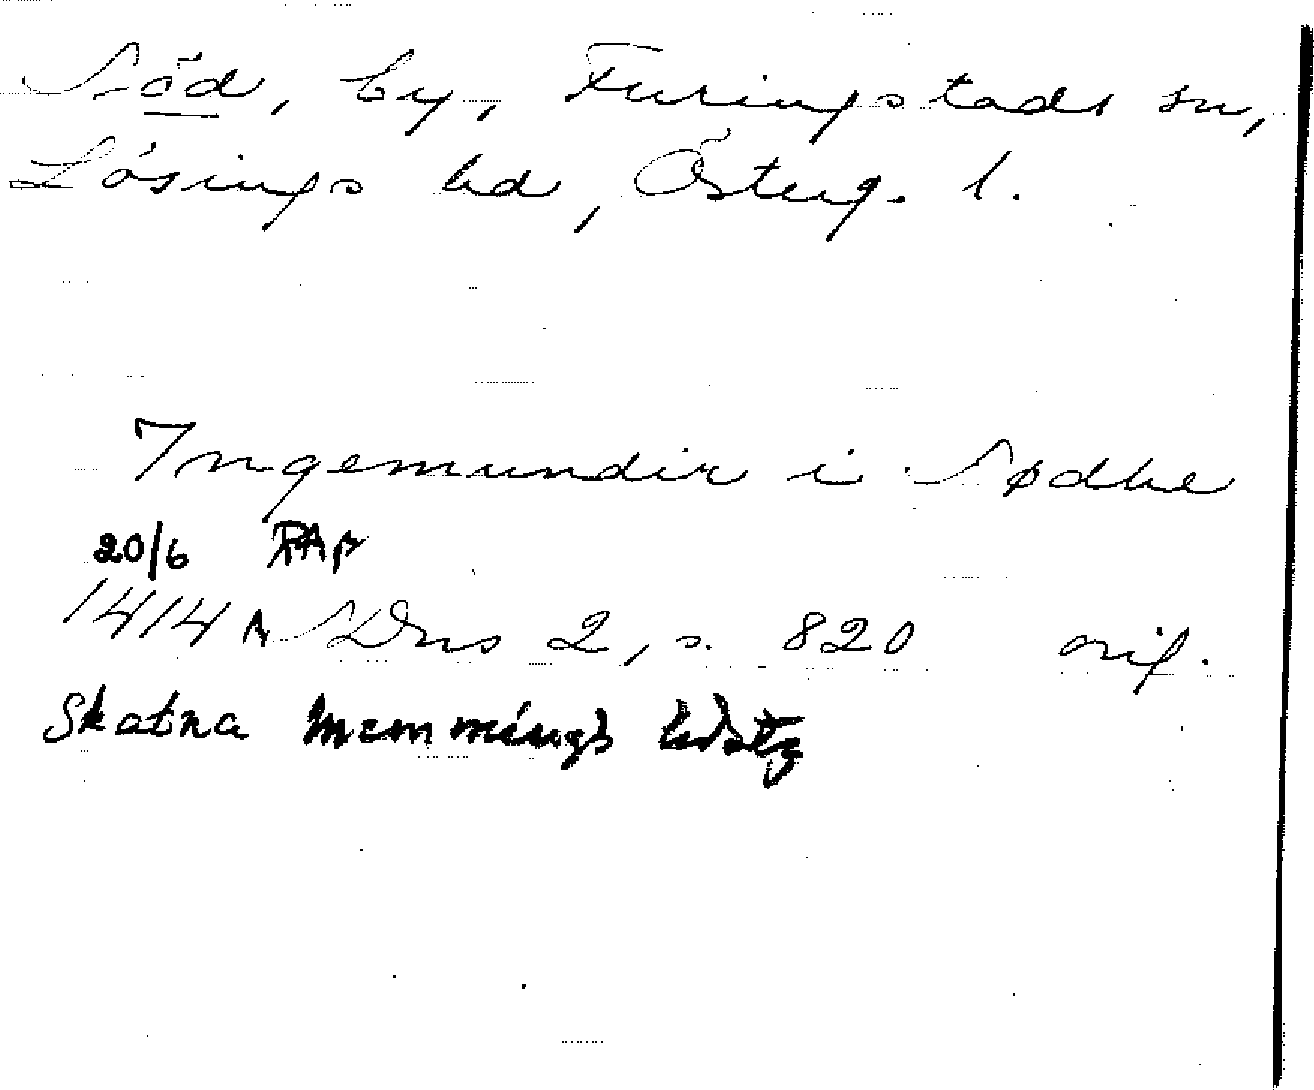 Nöd, by, Furingstads sn,
Lösings hd, Österg. l.
Ingemundir i Nødhe
20/6 RAp
1414 A SDns 2, s. 820 orig.
Skatna Memmings hdstg